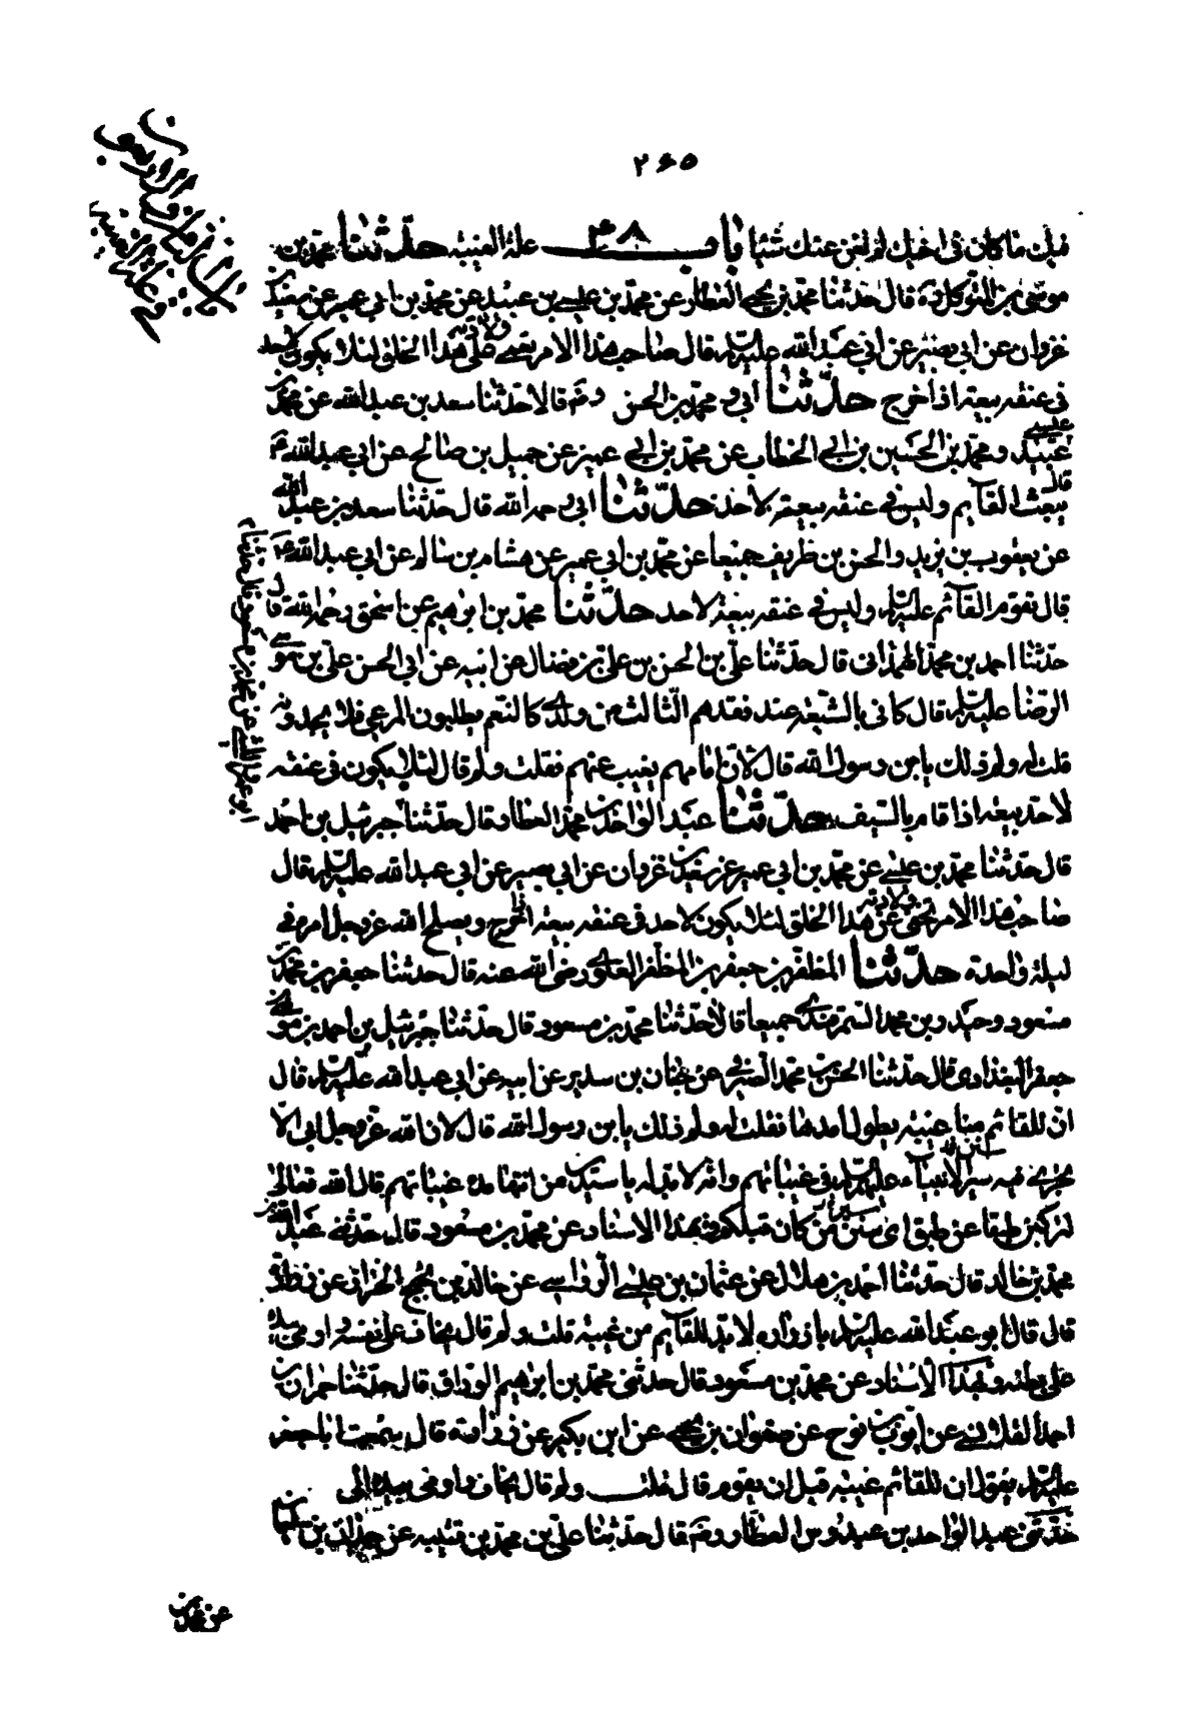 ٢٦٥
قبل ما كان في اخيك لم تغن عنك شيئا باب ٤٨ علة الغيبة حدّثنا محمد بن
موسى بن المتوكل ره قال حدثنا محمد بن يحيى العطار عن محمد بن عيسى بن عبيد عن محمد بن ابي عمير عن سعيد بن
غزوان عن ابي بصير عن ابي عبد الله عليه السلام قال صاحب هذا الامر تعمى ولادته على هذا الخلق لئلا يكون لاحد
في عنقه بيعة اذا خرج حدّثنا ابي و محمد بن الحسن رضه قالا حدّثنا سعد بن عبد الله عن محمد بن
عيسى بن عبيد و محمد بن الحسين بن ابي الخطاب عن محمد بن ابي عمير عن جميل بن صالح عن ابي عبد الله ع
قال يبعث القايم وليس في عنقه بيعة لاحد حدّثنا ابي رحمه الله قال حدّثنا سعد بن عبد الله
عن يعقوب بن يزيد والحسن بن ظريف جميعا عن محمد بن ابي عمير عن هشام بن سالم عن ابي عبد الله ع
قال يقوم القآئم عليه السلام وليس في عنقه بيعة لاحد حدّثنا محمد بن ابرهيم عن اسحق رحمه الله قال
حدّثنا احمد بن محمد الهمداني قال حدّثنا علي بن الحسن بن علي بن فضال عن ابيه عن ابي الحسن علي بن موسى
الرضا عليه السلام قال كاني بالشيعة عند فقدهم الثالث من ولدي كالنعم يطلبون المرعى فلا يجدونه
قلت له ولم ذلك يا بن رسول الله قال لان امامهم يغيب عنهم فقلت ولم قال لئلا يكون في عنقه
لاحد بيعة اذا قام بالسيف حدّثنا عبد الواحد بن محمد العطار قال حدّثنا جبرئيل بن احمد
قال حدّثنا محمد بن عيسى عن محمد بن ابي عمير عن سعيد بن غزوان عن ابي بصير عن ابي عبد الله عليه السلام قال
صاحب هذا الامر تخفى ولادته عن هذا الخلق لئلا يكون لاحد في عنقه بيعة اذا خرج و يصلح الله عز وجل امره في
ليلة واحدة حدّثنا المظفر بن جعفر بن المظفر العلوي رضي الله عنه قال حدثنا جعفر بن محمد بن
مسعود و حيدر بن محمد السمرقندي جميعا قالا حدّثنا محمد بن مسعود قال حدّثنا جبرئيل بن احمد بن موسى بن
جعفر البغدادي قال حدّثنا الحسن بن محمد الصيرفي عن حنان بن سدير عن ابيه عن ابي عبد الله عليه السلام قال
انّ للقائم منا غيبة يطول امدها فقلت له ولم ذلك يا بن رسول الله قال لان الله عز وجل ابى الّا
ان يجرى فيه سنن الانبياء عليهم السلام في غيباتهم وانه لا بد له يا سدير من انتهاء مدة غيباتهم قال الله تعالى
لتركبن طبقا عن طبق اى سنن من كان قبلكم وبهذا الاسناد عن محمد بن مسعود قال حدّثني عبد الله بن
محمد بن خالد قال حدّثنا احمد بن هلال عن عثمان بن عيسى الرواسي عن خالد بن نجيح الجزاني عن زرارة
قال قال ابو عبد الله عليه السلام يا زرارة لا بد للقآيم من غيبة قلت ولم قال يخاف على نفسه واومى بيده
على بطنه وبهذا الاسناد عن محمد بن مسعود قال حدّثني محمد بن ابرهيم الوراق قال حدّثنا حمدان بن
احمد القلانسي عن ايوب بن نوح عن صفوان بن يحيى عن ابن بكير عن زرارة قال سمعت ابا جعفر
عليه السلام يقول ان للقائم غيبة قبل ان يقوم قال قلت ولم قال يخاف واومى بيده الى بطنه
حدّثني عبد الواحد بن عبدوس العطار رضه قال حدّثنا علي بن محمد بن قتيبه عن حمدان بن سليمان
عن محمد بن